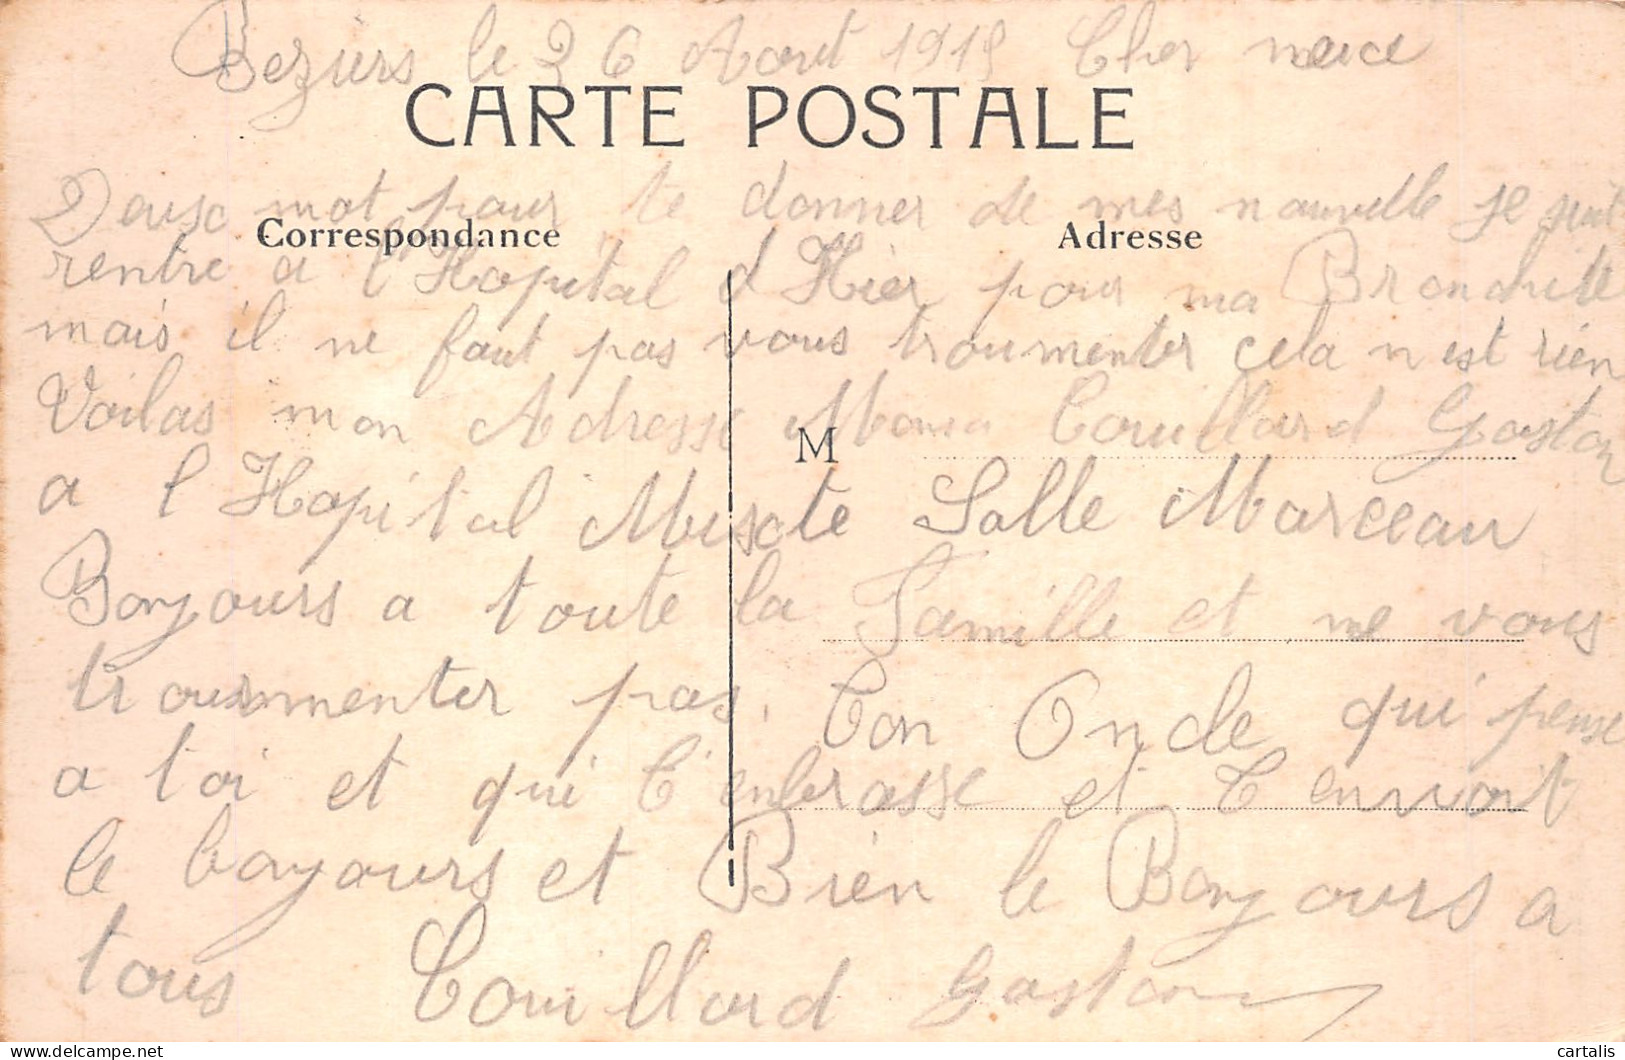 Beziers le 26 Aout 1915 Cher neice
CARTE POSTALE
Deusc mot pour te donner de mes nouvelle je suit
Correspondance
Adresse
rentre a l'Hopital d Hier pour ma Bronchite
mais il ne faut pas vous trourmenter cela n est rien
Voilas mon Adresse Couillard Gaston
M
a l Hopital Mixte Salle Marceau
Bonjours a toute la Famille et ne vous
trourmenter pas. Ton Oncle qui pense
a toi et qui t'enbrasse et t envoit
le bonjours et Bien le Bonjours a
tous Couillard Gaston
cartalis
delcampe.net